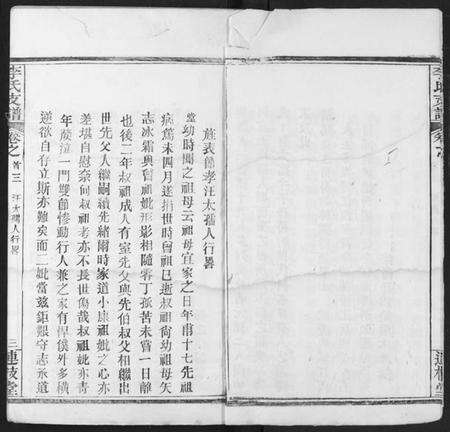 李氏支譜
卷之首三
汪太孺人行畧
三
連枝堂
旌表節孝汪太孺人行畧
堂幼時聞之祖母云祖母宜家之日年甫十七先祖
病篤未四月遂捐世時曾祖已逝叔祖尙幼祖母矢
志冰霜與曾祖妣形影相隨零丁孤苦未嘗一日離
也後二年叔祖成人有室先父與先伯叔父相繼出
世先父入繼嗣續先緒爾時家道小康祖妣之心亦
差堪自慰奈何叔祖考亦不長世傷哉叔祖妣亦靑
年廢泣一門雙節慘動行人兼之家有悍僕外多橫
逆欲自存立斯亦難矣而二妣當玆鉅艱守志承道